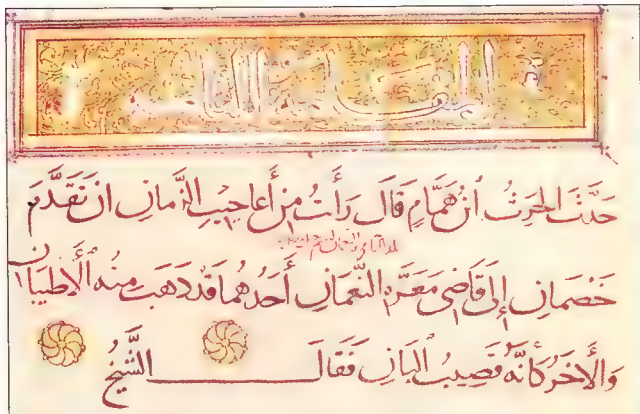 المقامة الثامنة
حَدَّثَ الحرِثُ ابْنُ هَمَّامٍ قَالَ رَأَيْتُ مِنْ أَعَاجِيبِ الزَّمَانِ انْ تَقَدَّمَ
خَصْمَانِ إِلَى قَاضِي مَعَرَّةِ النُّعْمَانِ أَحَدُهُمَا قَدْ ذَهَبَ مِنْهُ الأَطْيَبَانِ
وَالأَخَرُ كَأَنَّهُ قَضِيبُ البَانِ فَقَالَ الشَّيْخُ